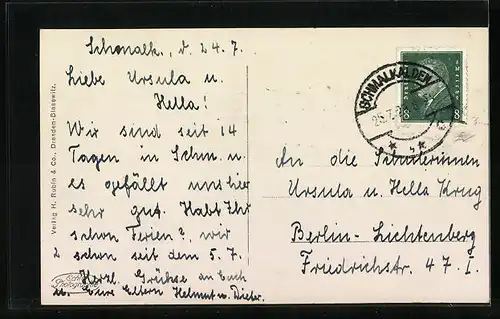 Schmalk., d. 24.7.
Liebe Ursula u.
Hella!
Wir sind seit 14
Tagen in Schm. u.
es gefällt uns hier
sehr gut. Habt Ihr
schon Ferien?, wir
schon seit dem 5.7.
Herzl. Grüße an Euch
u. Eure Eltern Helmut u. Dieter.
Verlag H. Rubin & Co., Dresden-Blasewitz.
SCHMALKALDEN
8 8
An die Schülerinnen
Ursula u. Hella Krug
Berlin-Lichtenberg
Friedrichstr. 47 I.